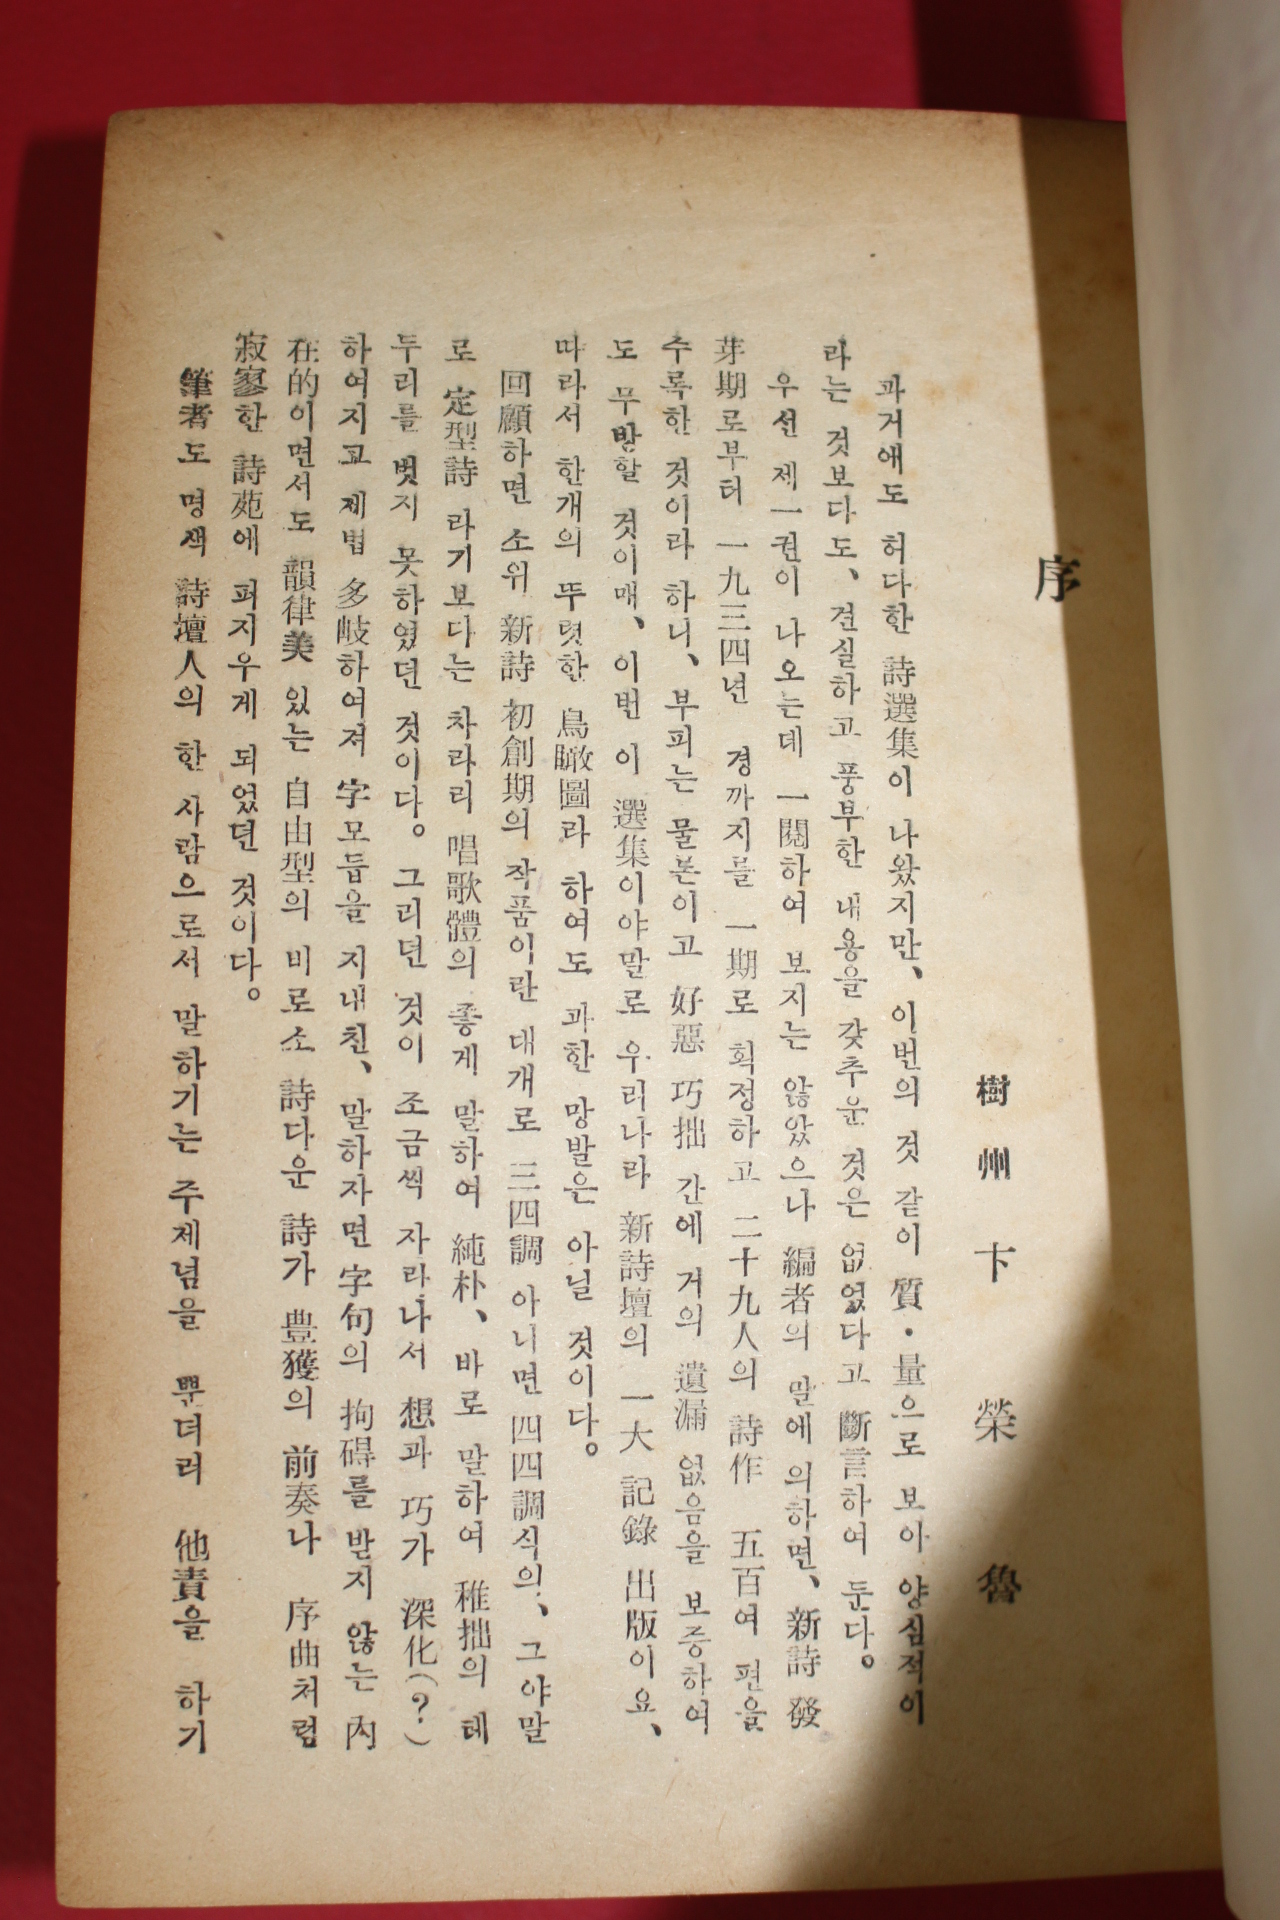 序
樹州 卞榮魯
과거애도 허다한 詩選集이 나왔지만、이번의 것 같이 質・量으로 보아 양심적이
라는 것보다도、견실하고 풍부한 내용을 갖추운 것은 없었다고 斷言하여 둔다。
우선 제一권이 나오는데 一閱하여 보지는 않았으나 編者의 말에 의하면、新詩 發
芽期로부터 一九三四년 경까지를 一期로 획정하고 二十九人의 詩作 五百여 편을
수록한 것이라 하니、부피는 물론이고 好惡 巧拙 간에 거의 遺漏 없음을 보증하여
도 무방할 것이매、이번 이 選集이야말로 우리나라 新詩壇의 一大 記錄 出版이요、
따라서 한개의 뚜렷한 鳥瞰圖라 하여도 과한 망발은 아닐 것이다。
回顧하면 소위 新詩 初創期의 작품이란 대개로 三四調 아니면 四四調식의、그야말
로 定型詩 라기보다는 차라리 唱歌體의 좋게 말하여 純朴、바로 말하여 稚拙의 테
두리를 벗지 못하였던 것이다。그리던 것이 조금씩 자라나서 想과 巧가 深化(?)
하여지고 제법 多岐하여져 字모듭을 지내친、말하자면 字句의 拘碍를 받지 않는 內
在的이면서도 韻律美 있는 自由型의 비로소 詩다운 詩가 豊獲의 前奏나 序曲처럼
寂寥한 詩苑에 퍼지우게 되었던 것이다。
筆者도 명색 詩壇人의 한 사람으로서 말하기는 주제넘을 뿐더러 他責을 하기